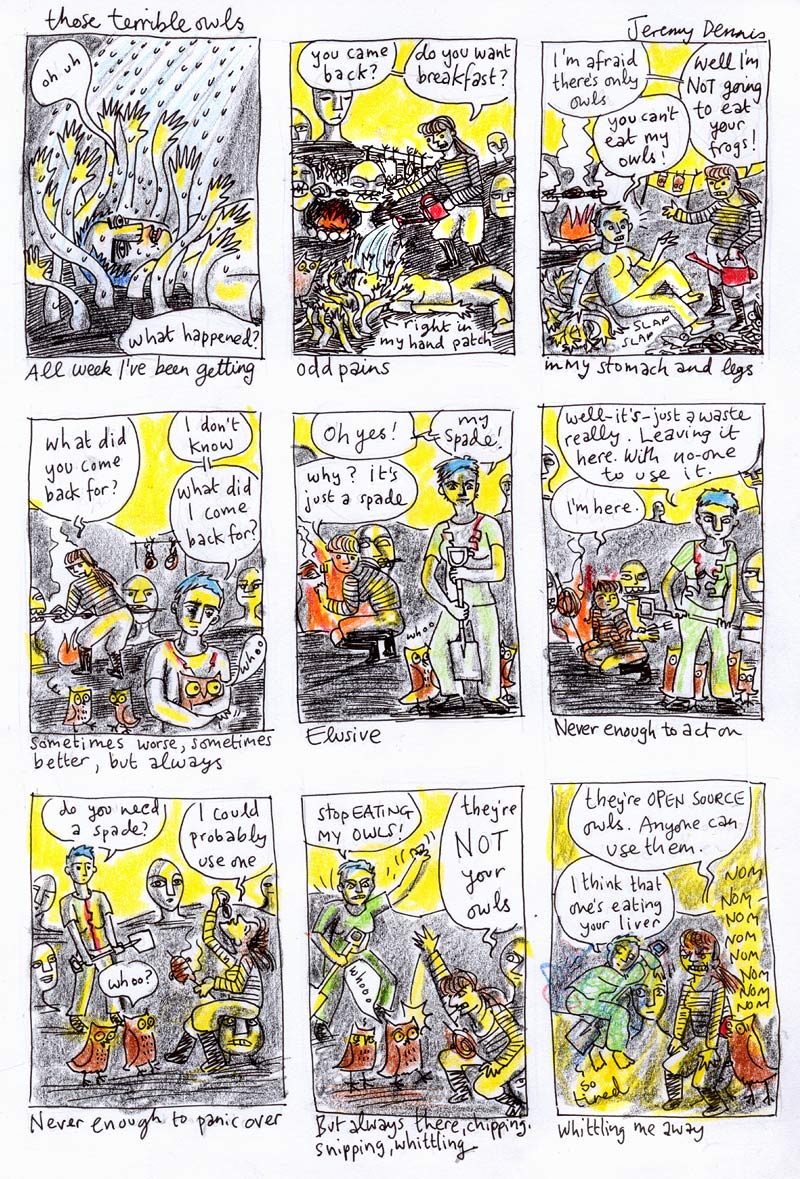 those terrible owls
Jeremy Dennis
oh uh
what happened?
All week I've been getting
you came
back?
do you want
breakfast?
right in
my hand patch
odd pains
I'm afraid
there's only
owls
well I'm
NOT going
to eat
your
frogs!
you can't
eat my
owls!
SLAP
SLAP
in my stomach and legs
what did
you come
back for?
I don't
know
what did
I come
back for?
whoo
sometimes worse, sometimes
better, but always
Oh yes!
my
spade!
why? it's
just a spade
whoo
Elusive
well-it's-just a waste
really. Leaving it
here. With no-one
to use it.
I'm here.
Never enough to act on
do you need
a spade?
I could
probably
use one
whoo?
Never enough to panic over
stop EATING
MY OWLS!
they're
NOT
your
owls
whooo
But always there, chipping.
snipping, whittling.
they're OPEN SOURCE
owls. Anyone can
use them.
I think that
one's eating
your liver
NOM
NOM
NOM
NOM
NOM
NOM
NOM
NOM
so
tired
whittling me away